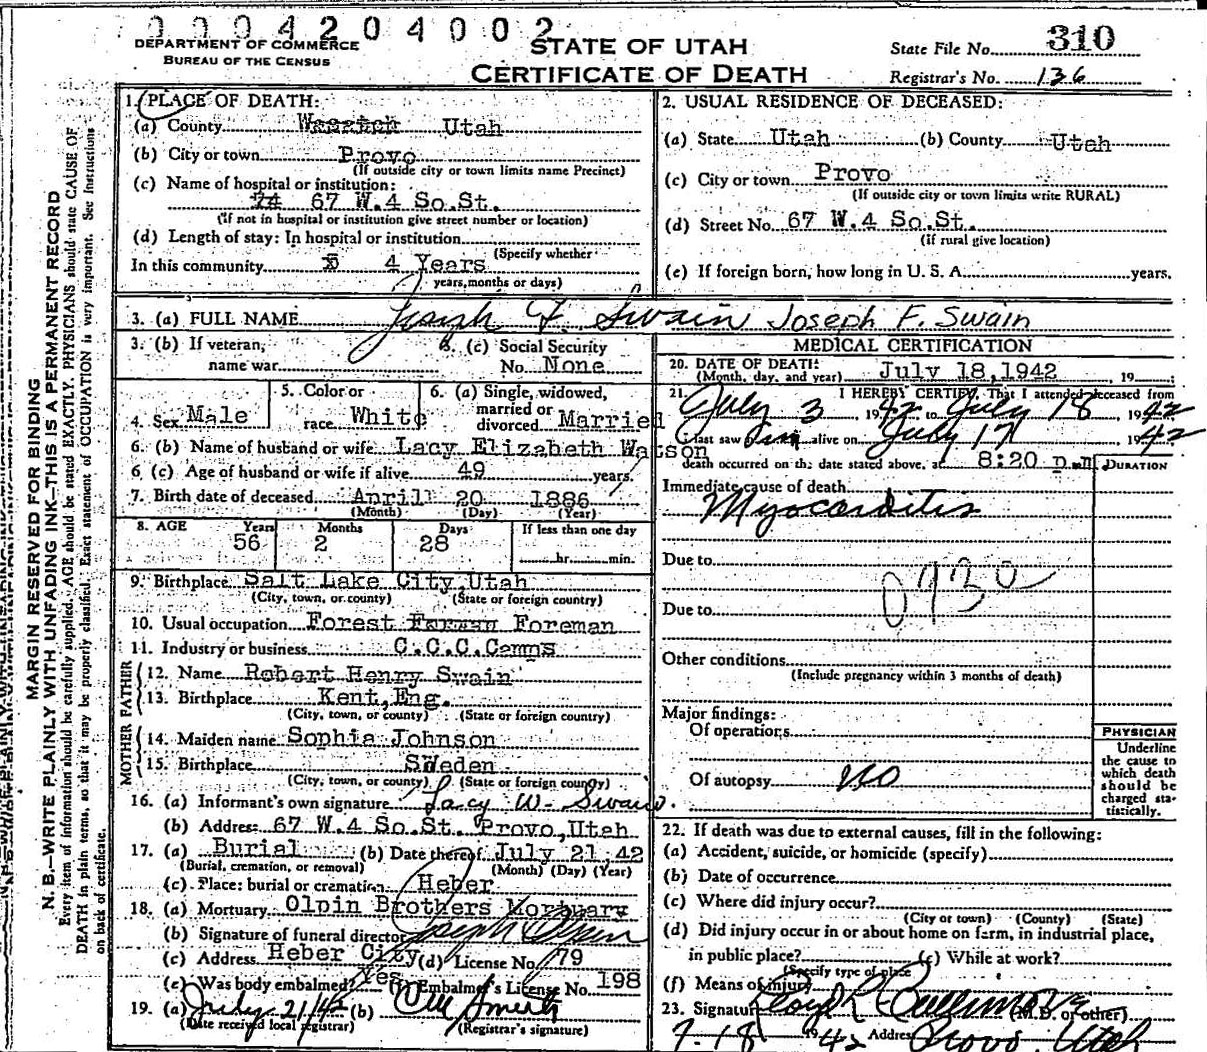 0004204002
DEPARTMENT OF COMMERCE
BUREAU OF THE CENSUS
STATE OF UTAH
CERTIFICATE OF DEATH
State File No. 310
Registrar's No. 136
MARGIN RESERVED FOR BINDING
N. B.—WRITE PLAINLY WITH UNFADING INK—THIS IS A PERMANENT RECORD
Every item of information should be carefully supplied. AGE should be stated EXACTLY. PHYSICIANS should state CAUSE OF
DEATH in plain terms, so that it may be properly classified. Exact statement of OCCUPATION is very important. See Instructions
on back of certificate.
1. PLACE OF DEATH:
(a) County Wasatch Utah
(b) City or town Provo
(If outside city or town limits name Precinct)
(c) Name of hospital or institution:
67 W.4 So.St.
(If not in hospital or institution give street number or location)
(d) Length of stay: In hospital or institution
(Specify whether
In this community 4 Years
years, months or days)
2. USUAL RESIDENCE OF DECEASED:
(a) State Utah (b) County Utah
(c) City or town Provo
(If outside city or town limits write RURAL)
(d) Street No. 67 W.4 So.St.
(If rural give location)
(e) If foreign born, how long in U. S. A. years.
3. (a) FULL NAME Joseph F. Swain Joseph F. Swain
3. (b) If veteran, name war
3. (c) Social Security No. None
4. Sex Male
5. Color or race White
6. (a) Single, widowed, married or divorced Married
6. (b) Name of husband or wife Lacy Elizabeth Watson
6. (c) Age of husband or wife if alive 49 years
7. Birth date of deceased Aprill 20 1886
(Month) (Day) (Year)
8. AGE Years Months Days If less than one day
56 2 28 hr. min.
9. Birthplace Salt Lake City, Utah
(City, town, or county) (State or foreign country)
10. Usual occupation Forest Foreman
11. Industry or business C.C.C.Camps
FATHER
12. Name Robert Henry Swain
13. Birthplace Kent, Eng.
(City, town, or county) (State or foreign country)
MOTHER
14. Maiden name Sophia Johnson
15. Birthplace Sweden
(City, town, or county) (State or foreign country)
16. (a) Informant's own signature Lacy W. Swain.
(b) Address 67 W.4 So.St. Provo, Utah
17. (a) Burial (b) Date thereof July 21, 42
(Burial, cremation, or removal) (Month) (Day) (Year)
(c) Place: burial or cremation Heber
18. (a) Mortuary Olpin Brothers Mortuary
(b) Signature of funeral director Joseph Olpin
(c) Address Heber City (d) License No. 79
(e) Was body embalmed? Yes (f) Embalmer's License No. 198
19. (a) July 21/42 (b)
(Date received local registrar) (Registrar's signature)
MEDICAL CERTIFICATION
20. DATE OF DEATH: July 18, 1942, 19
(Month, day, and year)
21. I HEREBY CERTIFY, That I attended deceased from
July 3, 1942 to July 18 1942
I last saw him alive on July 17 1942
death occurred on the date stated above, at 8:20 p.m.
DURATION
Immediate cause of death
Myocarditis
Due to
0930
Due to
Other conditions
(Include pregnancy within 3 months of death)
Major findings:
Of operations
Of autopsy no
PHYSICIAN
Underline
the cause to
which death
should be
charged sta-
tistically.
22. If death was due to external causes, fill in the following:
(a) Accident, suicide, or homicide (specify)
(b) Date of occurrence
(c) Where did injury occur?
(City or town) (County) (State)
(d) Did injury occur in or about home on farm, in industrial place,
in public place? (e) While at work?
(Specify type of place)
(f) Means of injury
23. Signature Lloyd L. Cullimore (M.D. or other)
7-18 1942 Address Provo, Utah